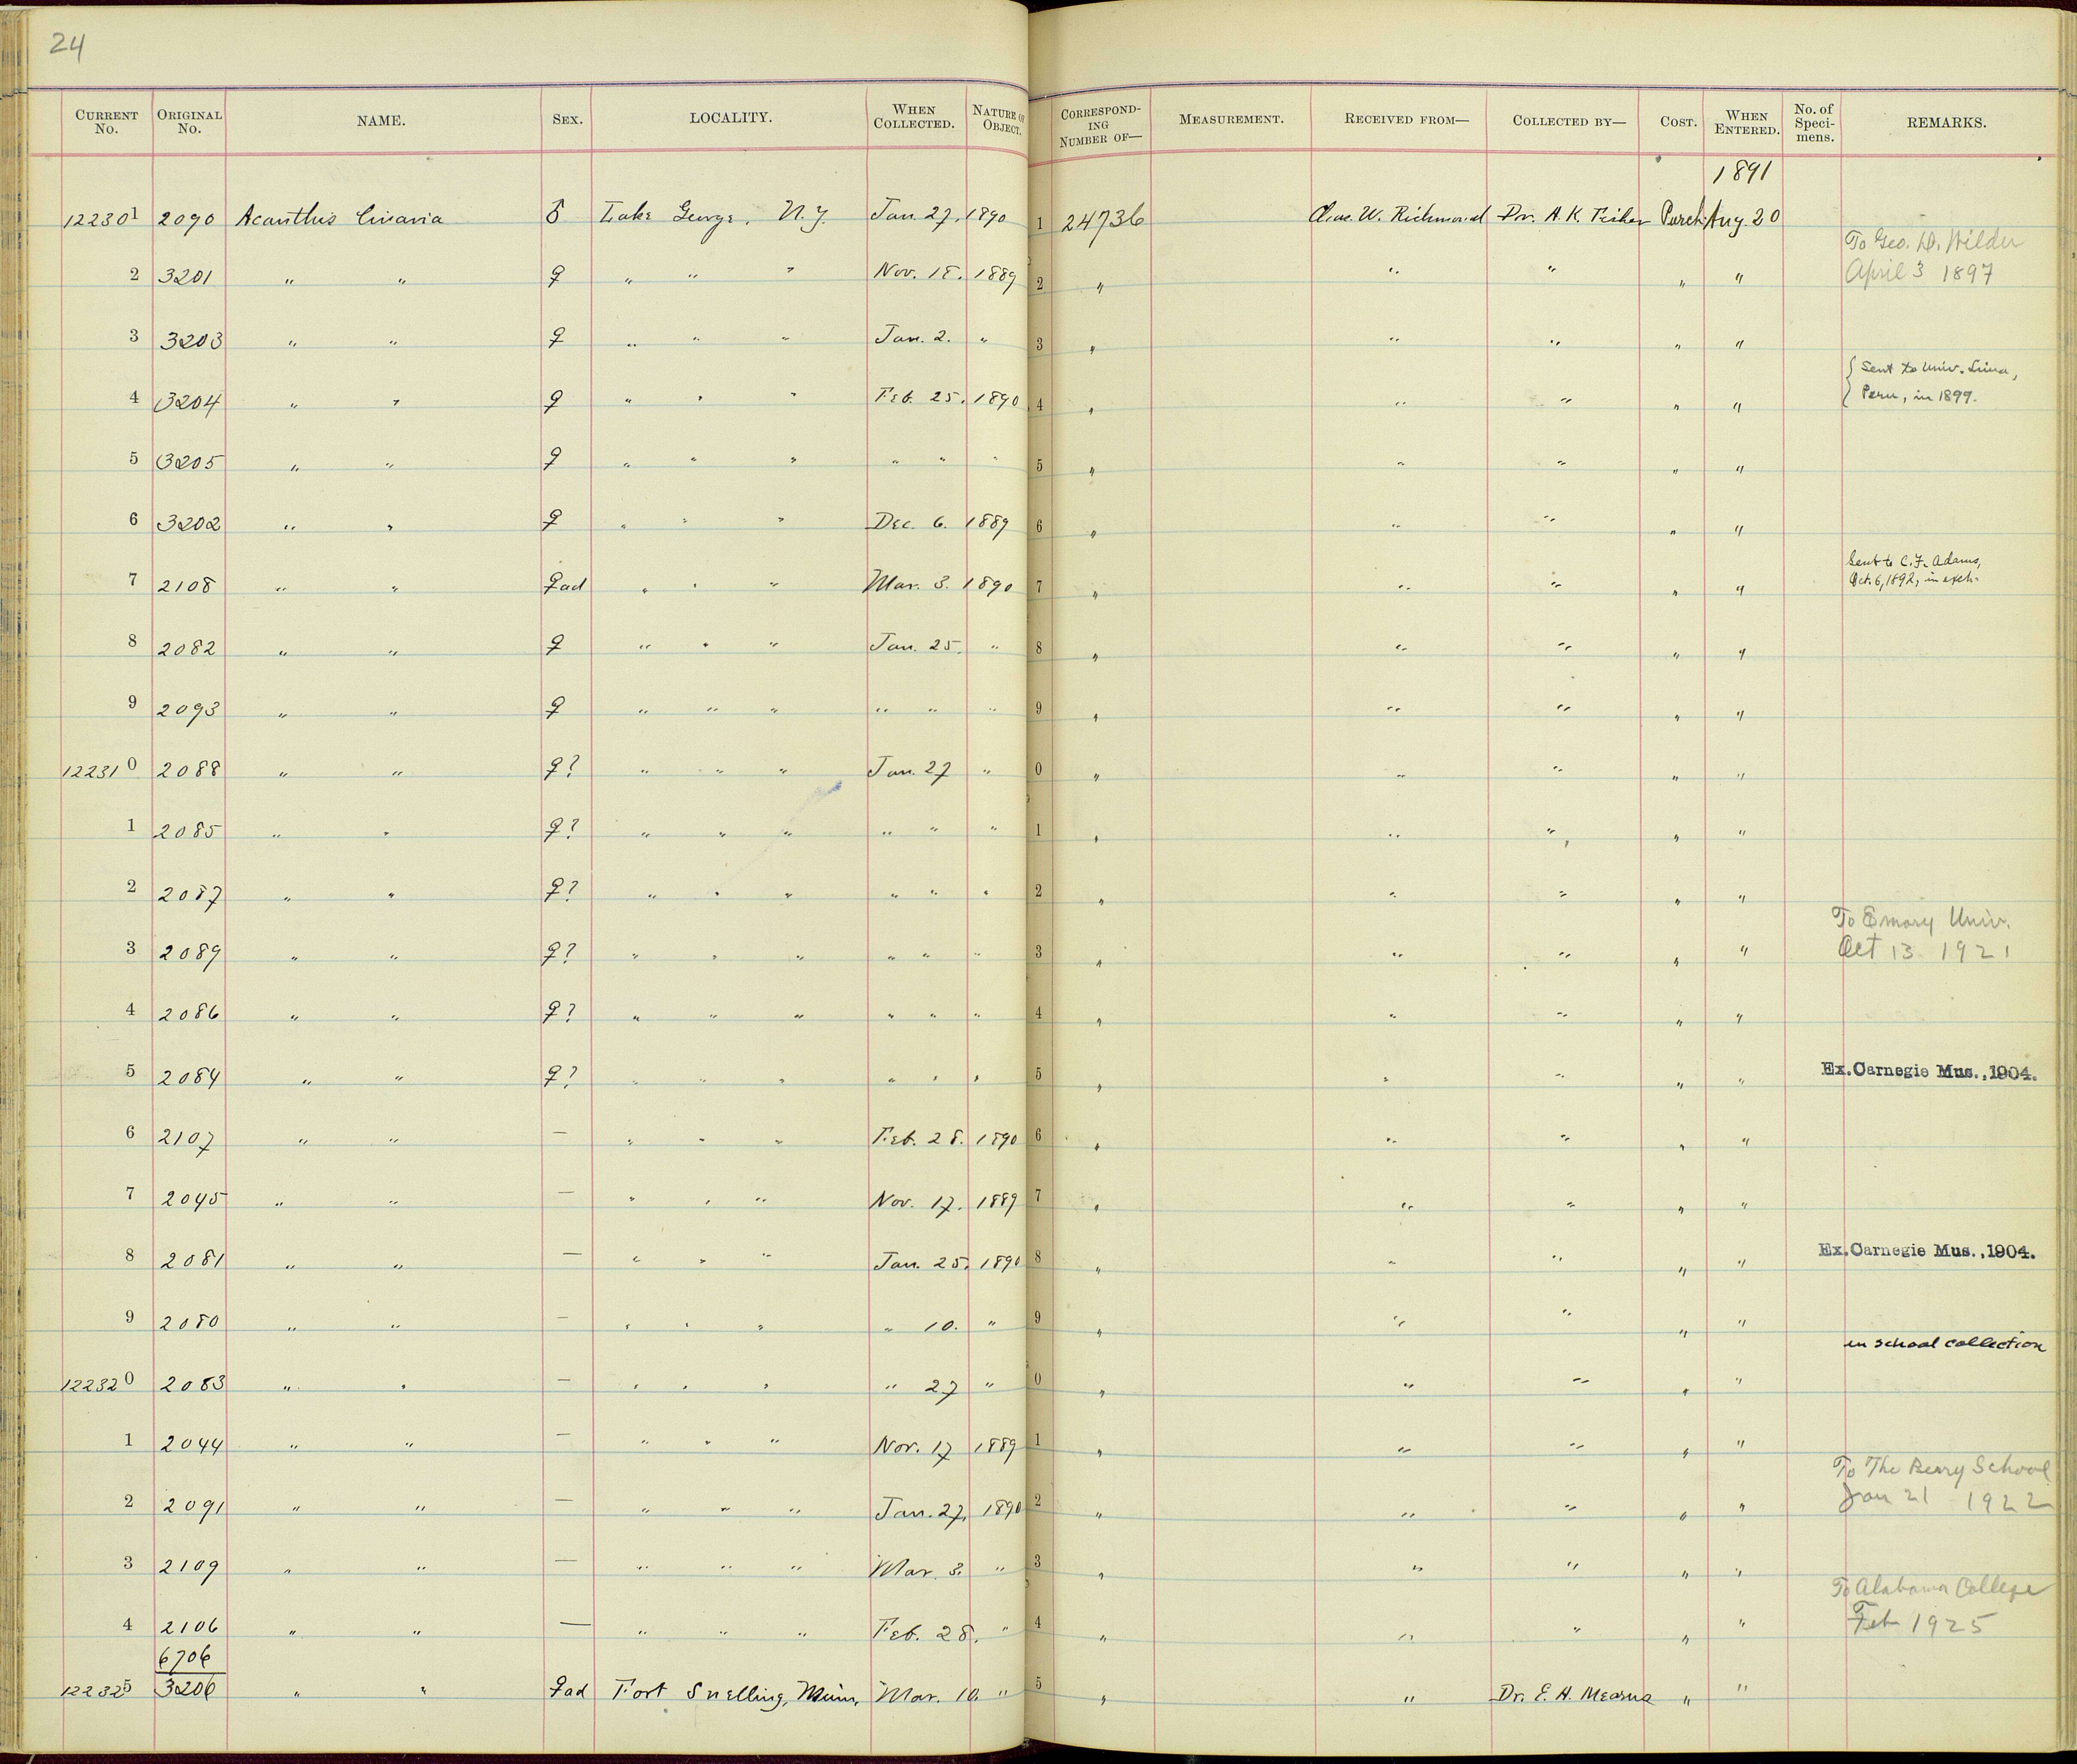 24
CURRENT No. ORIGINAL No. NAME. SEX. LOCALITY. WHEN COLLECTED. NATURE OF OBJECT. CORRESPONDING NUMBER OF— MEASUREMENT. RECEIVED FROM— COLLECTED BY— COST. WHEN ENTERED. No. of Specimens. REMARKS.
1891
122301 2090 Acanthis linaria ♂ Lake George, N.Y. Jan. 27, 1890 1 24736 Chas. W. Richmond Dr. A. K. Fisher Purch. Aug. 20
To Geo. D. Wilder
2 3201 " " ♀ " " " Nov. 18. 1889 2 " " " " " April 3 1897
3 3203 " " ♀ " " " Jan. 2. " 3 " " " " "
{ Sent to Univ. Lima,
4 3204 " " ♀ " " " Feb. 25. 1890 4 " " " " " { Peru, in 1899.
5 3205 " " ♀ " " " " " " 5 " " " " "
6 3202 " " ♀ " " " Dec. 6. 1889 6 " " " " "
Sent to C. F. Adams,
7 2108 " " ♀ad " " " Mar. 3. 1890 7 " " " " " Oct. 6, 1892, in exch.
8 2082 " " ♀ " " " Jan. 25. " 8 " " " " "
9 2093 " " ♀ " " " " " " 9 " " " " "
122310 2088 " " ♀? " " " Jan. 27 " 0 " " " " "
1 2085 " " ♀? " " " " " " 1 " " " " "
2 2087 " " ♀? " " " " " " 2 " " " " "
To Emory Univ.
3 2089 " " ♀? " " " " " " 3 " " " " " Oct 13 1921
4 2086 " " ♀? " " " " " " 4 " " " " "
5 2084 " " ♀? " " " " " " 5 " " " " " Ex. Carnegie Mus., 1904.
6 2107 " " — " " " Feb. 28. 1890 6 " " " " "
7 2045 " " — " " " Nov. 17. 1889 7 " " " " "
8 2081 " " — " " " Jan. 25. 1890 8 " " " " " Ex. Carnegie Mus., 1904.
9 2080 " " — " " " " 10. " 9 " " " " "
in school collection
122320 2083 " " — " " " " 27 " 0 " " " " "
1 2044 " " — " " " Nov. 17 1889 1 " " " " "
To The Berry School
2 2091 " " — " " " Jan. 27, 1890 2 " " " " " Jan 21 1922
3 2109 " " — " " " Mar. 3. " 3 " " " " "
To Alabama College
4 2106 " " — " " " Feb. 28. " 4 " " " " " Feb 1925
6706
122325 3206 " " ♀ad Fort Snelling, Minn. Mar. 10. " 5 " " Dr. E. A. Mearns " "